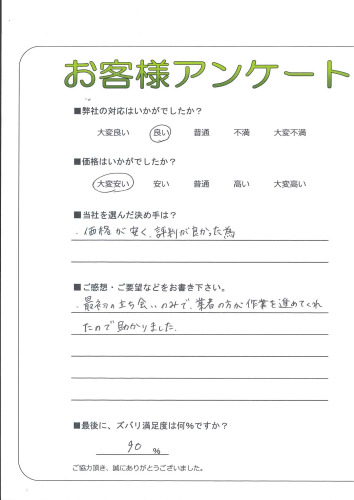 お客様アンケート
■弊社の対応はいかがでしたか？
大変良い 良い 普通 不満 大変不満
■価格はいかがでしたか？
大変安い 安い 普通 高い 大変高い
■当社を選んだ決め手は？
・価格が安く、評判が良かった為
■ご感想・ご要望などをお書き下さい。
・最初の立ち会いのみで、業者の方が作業を進めてくれ
たので助かりました。
■最後に、ズバリ満足度は何％ですか？
90 ％
ご協力頂き、誠にありがとうございました。